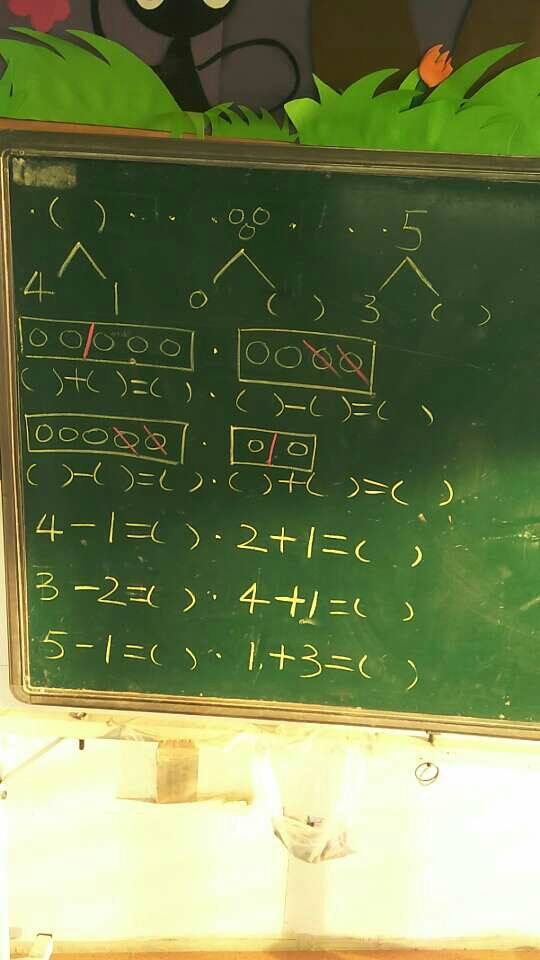 ( ) 5
4 1 0 ( ) 3 ( )
( )+( )=( ) ( )-( )=( )
( )-( )=( ) ( )+( )=( )
4-1=( ) 2+1=( )
3-2=( ) 4+1=( )
5-1=( ) 1+3=( )